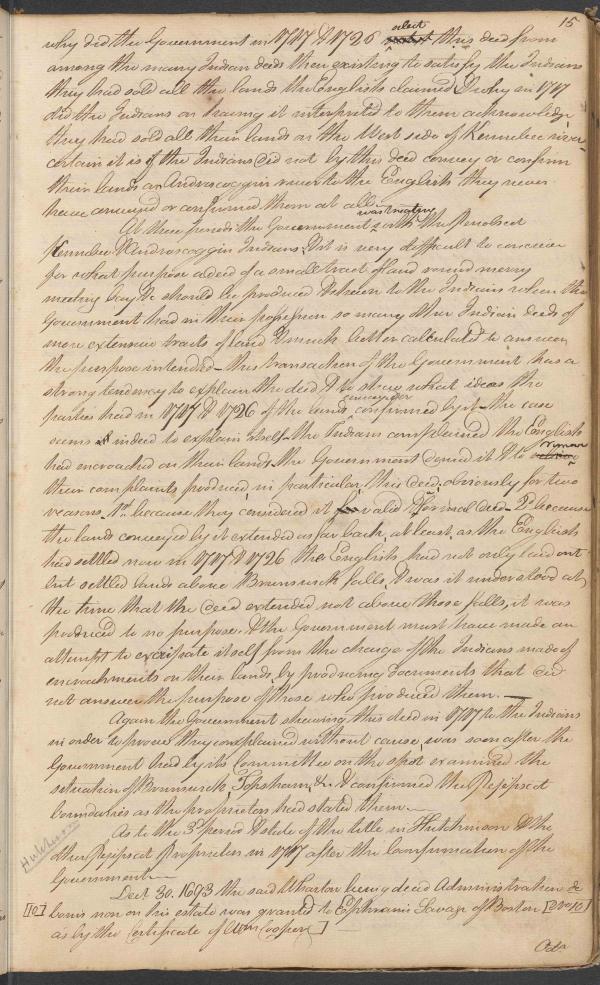 15
why did the Government in 1717 & 1726 select this deed from
among the many Indian deeds then existing to satisfy the Indians
they had sold all the lands the English claimed & why in 1717
did the Indians on having it interpreted to them acknowledge
they had sold all their lands on the West side of Kennebec river
certain it is if the Indians did not by this deed convey or confirm
their lands on Androscoggin river to the English they never
have conveyed or confirmed them at all
At these periods the Government was treating with the Penobscot
Kennebec & Androscoggin Indians. & it is very difficult to conceive
for what purpose a deed of a small tract of land round merry
meeting bay &c should be produced & shewn to the Indians when the
Government had in their possession so many other Indian deeds of
more extensive tracts of land & much better calculated to answer
the purpose intended this transaction of the Government has a
strong tendency to explain the deed & to shew what ideas the
parties had in 1717 & 1726 of the lands conveyed or confirmed by it the case
seems indeed to explain itself the Indians complained the English
had encroached on their lands the Government denied it & to remove
their complaints produced in particular this deed, obviously for two
reasons 1st because they considered it a valid & formal deed 2d because
the lands conveyed by it extended as far back, at least, as the English
had settled now in 1717 & 1726 the English had not only laid out
but settled lands above Brunswick falls, & was it understood at
the time that the deed extended not above those falls, it was
produced to no purpose & the Government must have made an
attempt to exculpate itself from the charge of the Indians made of
encroachments on their lands, by producing documents that did
not answer the purpose of those who produced them.
Again the Government shewing this deed in 1717 to the Indians
in order to prove they complained without cause, was soon after the
Government had by its Committee on the spot examined the
situation of Brunswick, Topsham, &c. & confirmed the Pejepscot
boundaries as the proprietors had stated them.
As to the 3d period & state of the title in Hutchinson & the
other Pejepscot Proprietors in 1717 after the Confirmation of the
Government
Hutchinson
Decr 30. 1693 the said Wharton being dead Administration de
[10] bonis non on his estate was granted to Ephraim Savage of Boston [No 10]
as by the Certificate of Wm Cooper]
Ad.